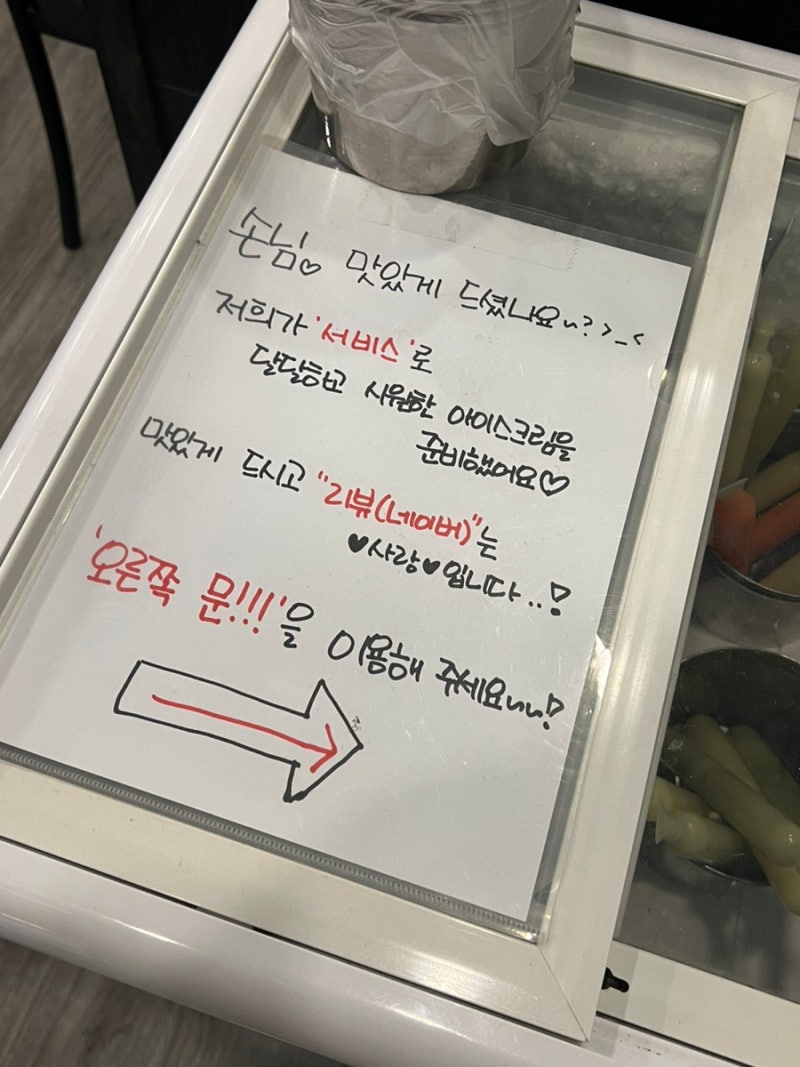 손님♡ 맛있게 드셨나요~?>_<
저희가 '서비스'로
달달하고 시원한 아이스크림을
준비했어요♡
맛있게 드시고 "리뷰(네이버)"는
♥사랑♥입니다..!
'오른쪽 문!!!'을 이용해 주세요~~!